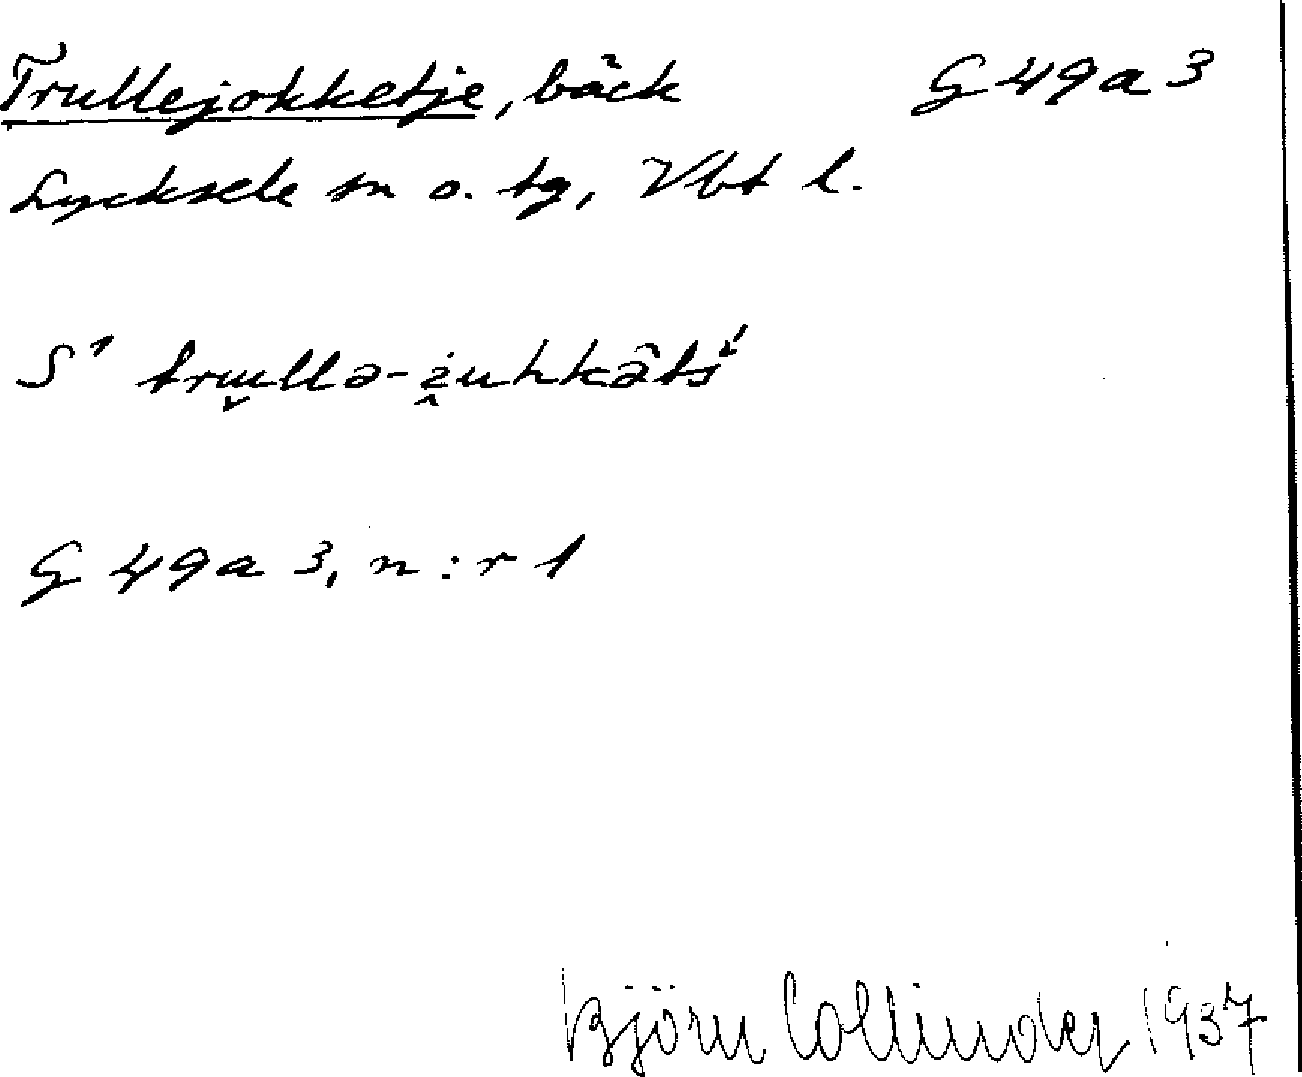 Trullejokketje, bäck G 49a 3
Lycksele sn o. tg, Vbt l.
S¹
G 49a 3, n:r 1
Björn Collinder 1937